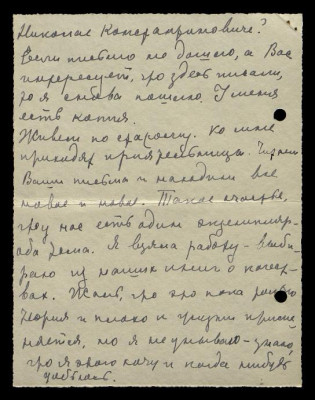 Николае Константинович!
Если письмо не дошло, а Вас
интересует, что здесь писали,
то я снова пошлю. У меня
есть копия.
Живем по старому. Ко мне
приходят приятельницы. Читаем
Ваши письма и находим все
новое и новое. Такое счастье,
что у нас есть один экземпляр
оба тома. Я взяла работу – выби-
раю из наших книг о
Жаль, что это пока только
теория и плохо к жизни приме-
няется, но я не унываю – знаю,
что я этого хочу и когда нибудь
добьюсь.